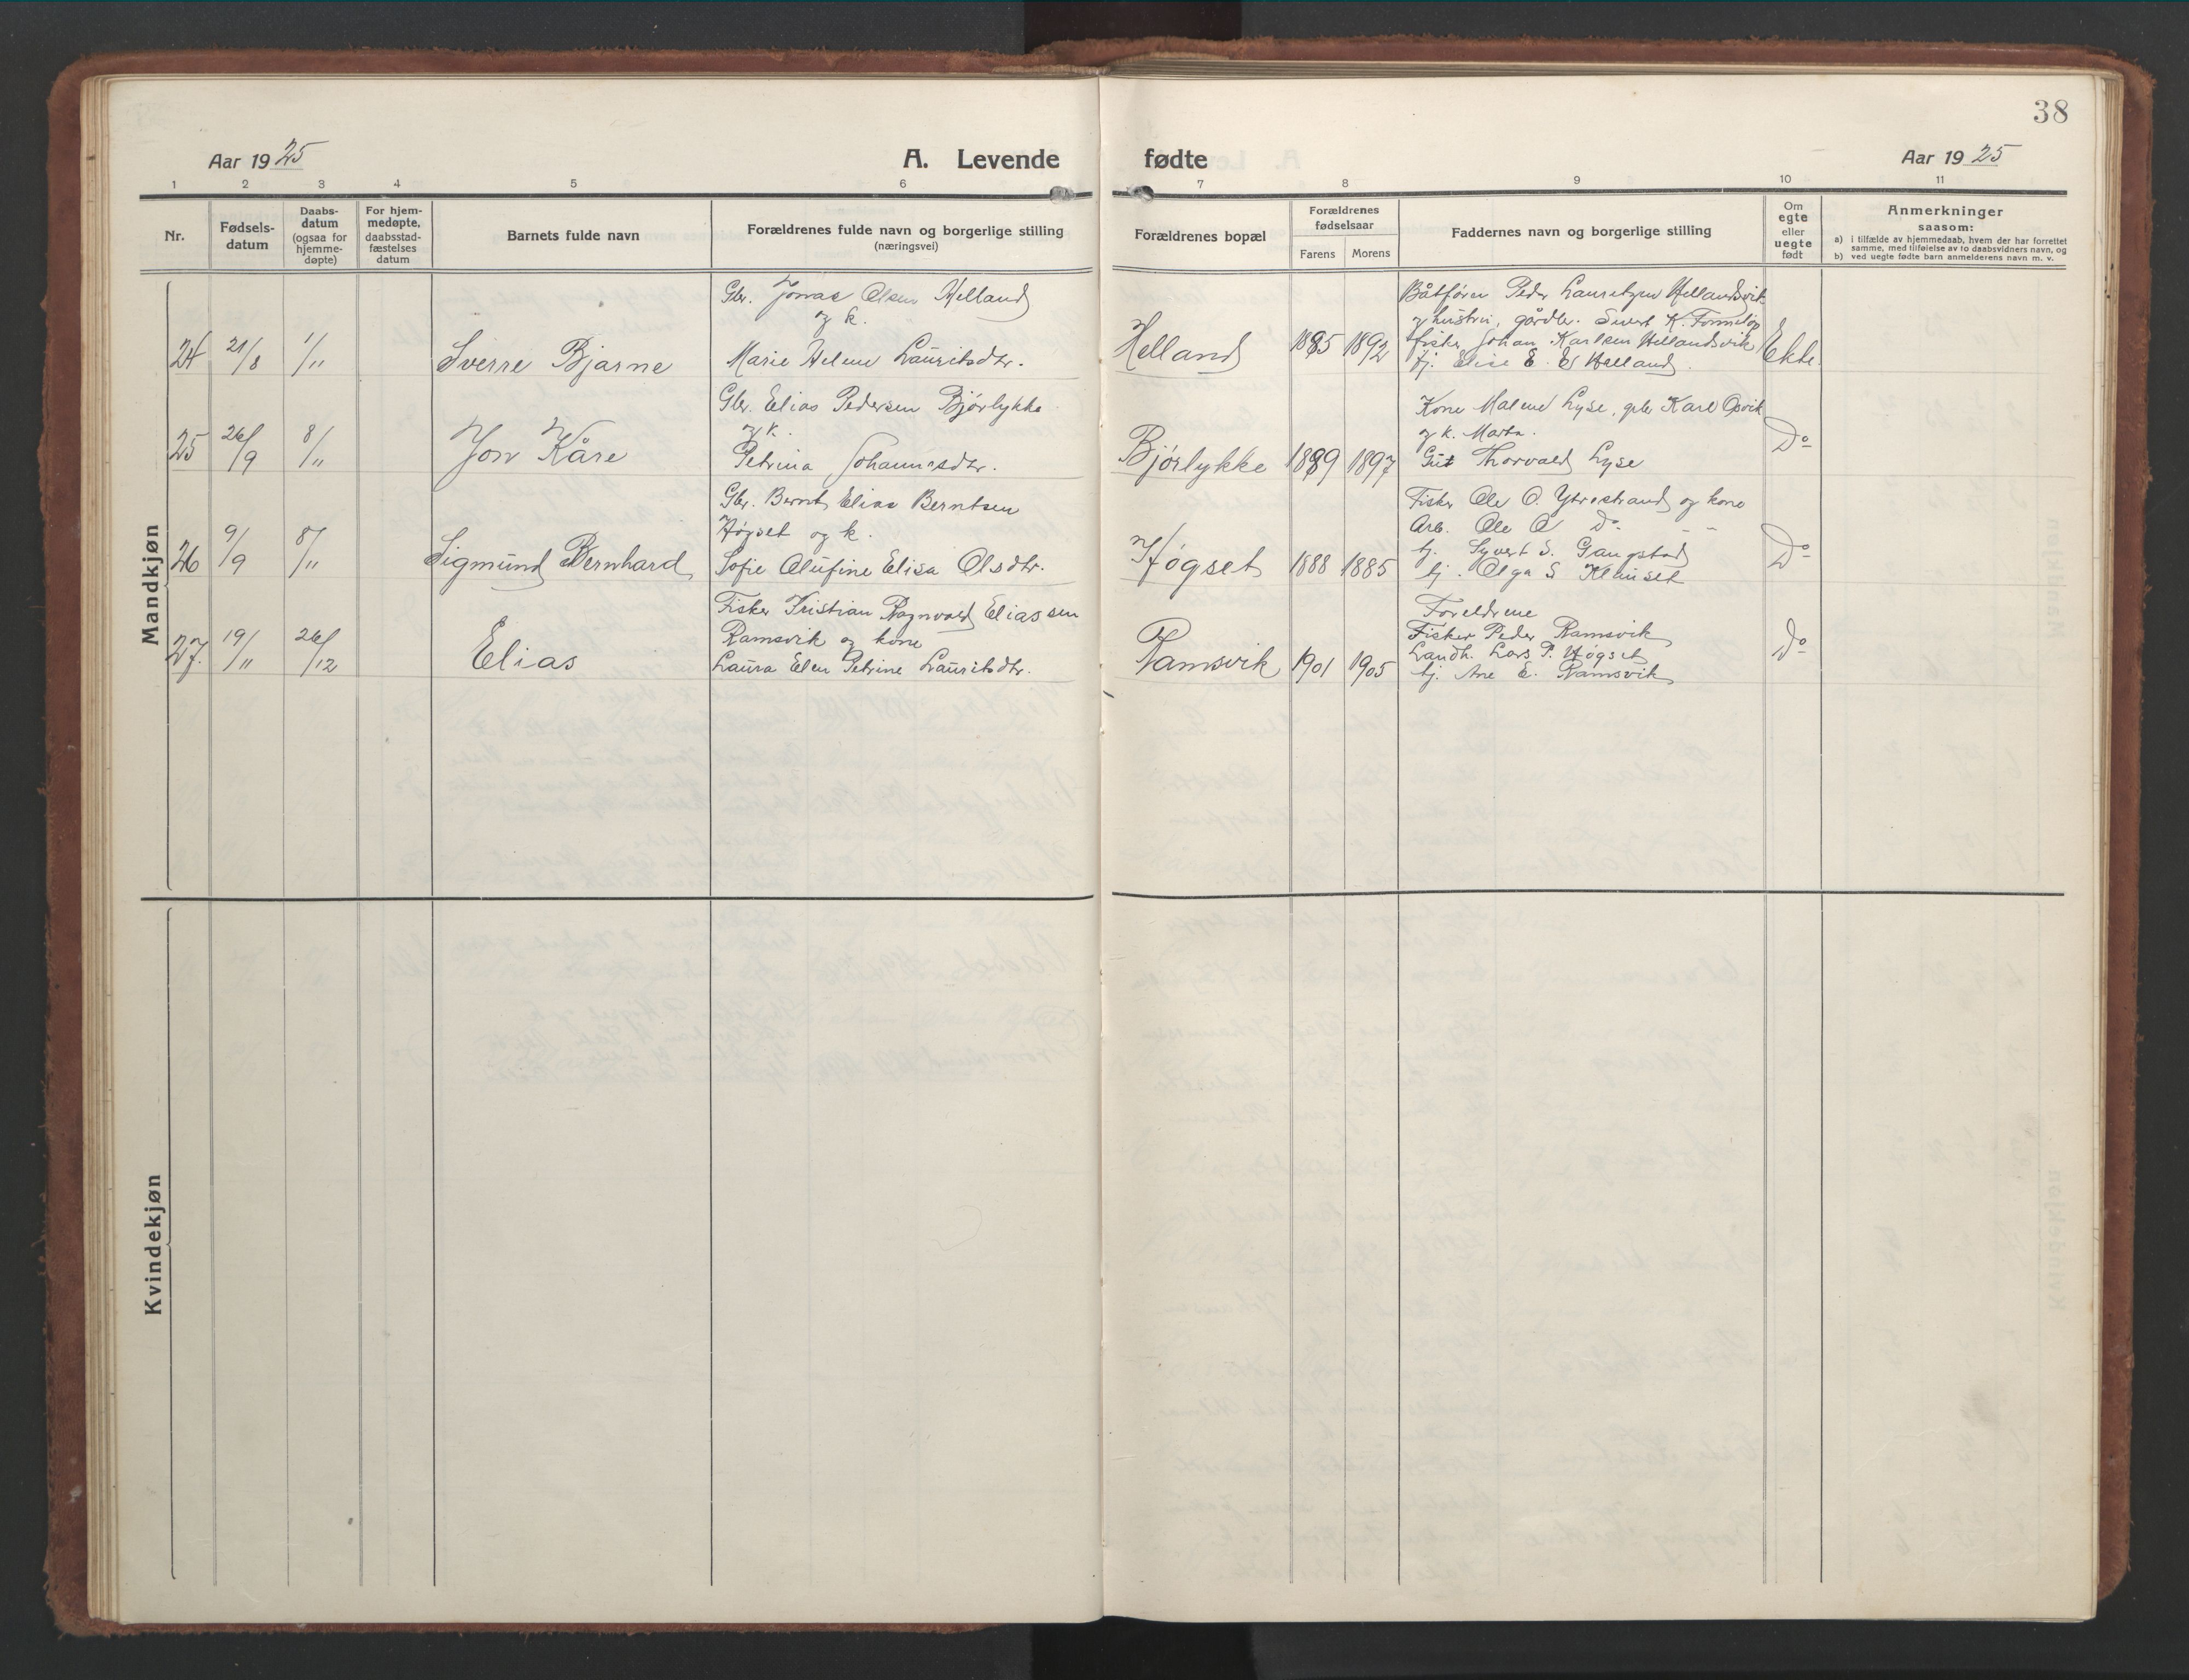 38
Aar 1925
A. Levende fødte
Aar 1925
1 2 3 4 5 6 7 8 9 10 11
Nr.
Fødsels-
datum
Daabs-
datum
(ogsaa for
hjemme-
døpte)
For hjem-
medøpte,
daabsstad-
fæstelses
datum
Barnets fulde navn
Forældrenes fulde navn og borgerlige stilling
(næringsvei)
Forældrenes bopæl
Forældrenes
fødselsaar
Farens Morens
Faddernes navn og borgerlige stilling
Om
egte
eller
uegte
født
Anmerkninger
saasom:
a) i tilfælde av hjemmedaab, hvem der har forrettet
samme, med tilføielse av to daabsvidners navn, og
b) ved uegte fødte barn anmelderens navn m. v.
Mandkjøn
24 21/8 1/11 Sverre Bjarne
Gbr. Jonas Olsen Helland
og k.
Marie Helene Lauritsdtr.
Helland 1885 1892
Båtfører Peder Lauritzen Hellandsvik
og hustru, gårdbr. Sivert K.
fisker Johan Karlsen Hellandsvik
pj. Elise E. Helland
Ekte.
25 26/9 8/11 Jon Kåre
Gbr. Elias Pedersen Bjørlykke
og k.
Petrina Johannesdtr.
Bjørlykke 1889 1897
Kone Malene Lyse, gbr Karl Opsvik
og k. Marta.
Gut Thorvald Lyse
Do
26 9/9 8/11 Sigmund Bernhard
Gbr. Bernt Elias Berntsen
Høgset og k.
Sofie Olufine Elisa Olsdtr.
Høgset 1888 1885
Fisker Ole O. Ytrestrand og kone
Arb. Ole O Do - -
Syvert S. Gangstad
pj. Olga S Klauset
Do
27. 19/11 26/12 Elias
Fisker Kristian Ragnvald Eliassen
Ramsvik og kone
Laura Elen Petrine Lauritsdtr.
Ramsvik 1901 1905
Foreldrene
Fisker Peder Ramsvik
Landh. Lars P. Høgset
pj. Ane E. Ramsvik
Do
Kvindekjøn